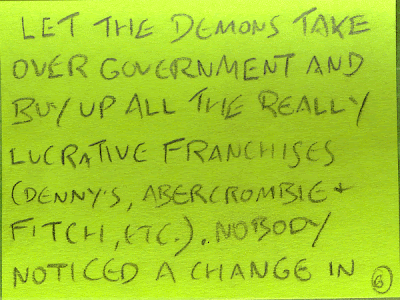 LET THE DEMONS TAKE
OVER GOVERNMENT AND
BUY UP ALL THE REALLY
LUCRATIVE FRANCHISES
(DENNY'S, ABERCROMBIE +
FITCH, ETC.).. NOBODY
NOTICED A CHANGE IN 6